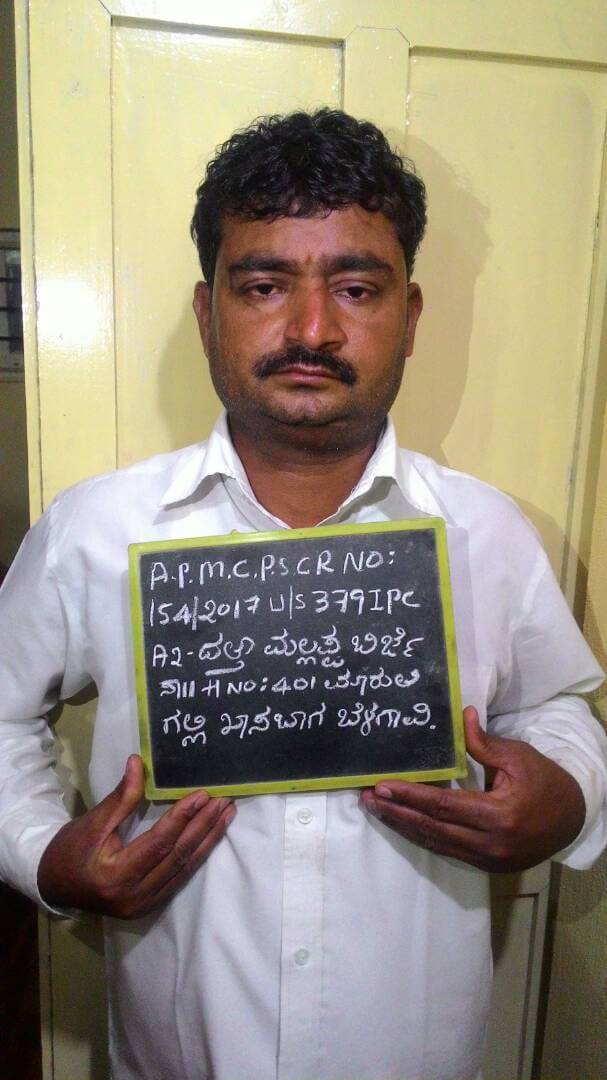 A.P.M.C.P.S.CR NO:
154/2017 U/S 379 IPC
A2-ದತ್ತಾ ಮಲ್ಲಪ್ಪ ಬಿರ್ಜೆ
ಸಾ॥ H NO: 401 ಮಾರುತಿ
ಗಲ್ಲಿ ಖಾಸಬಾಗ ಬೆಳಗಾವಿ.